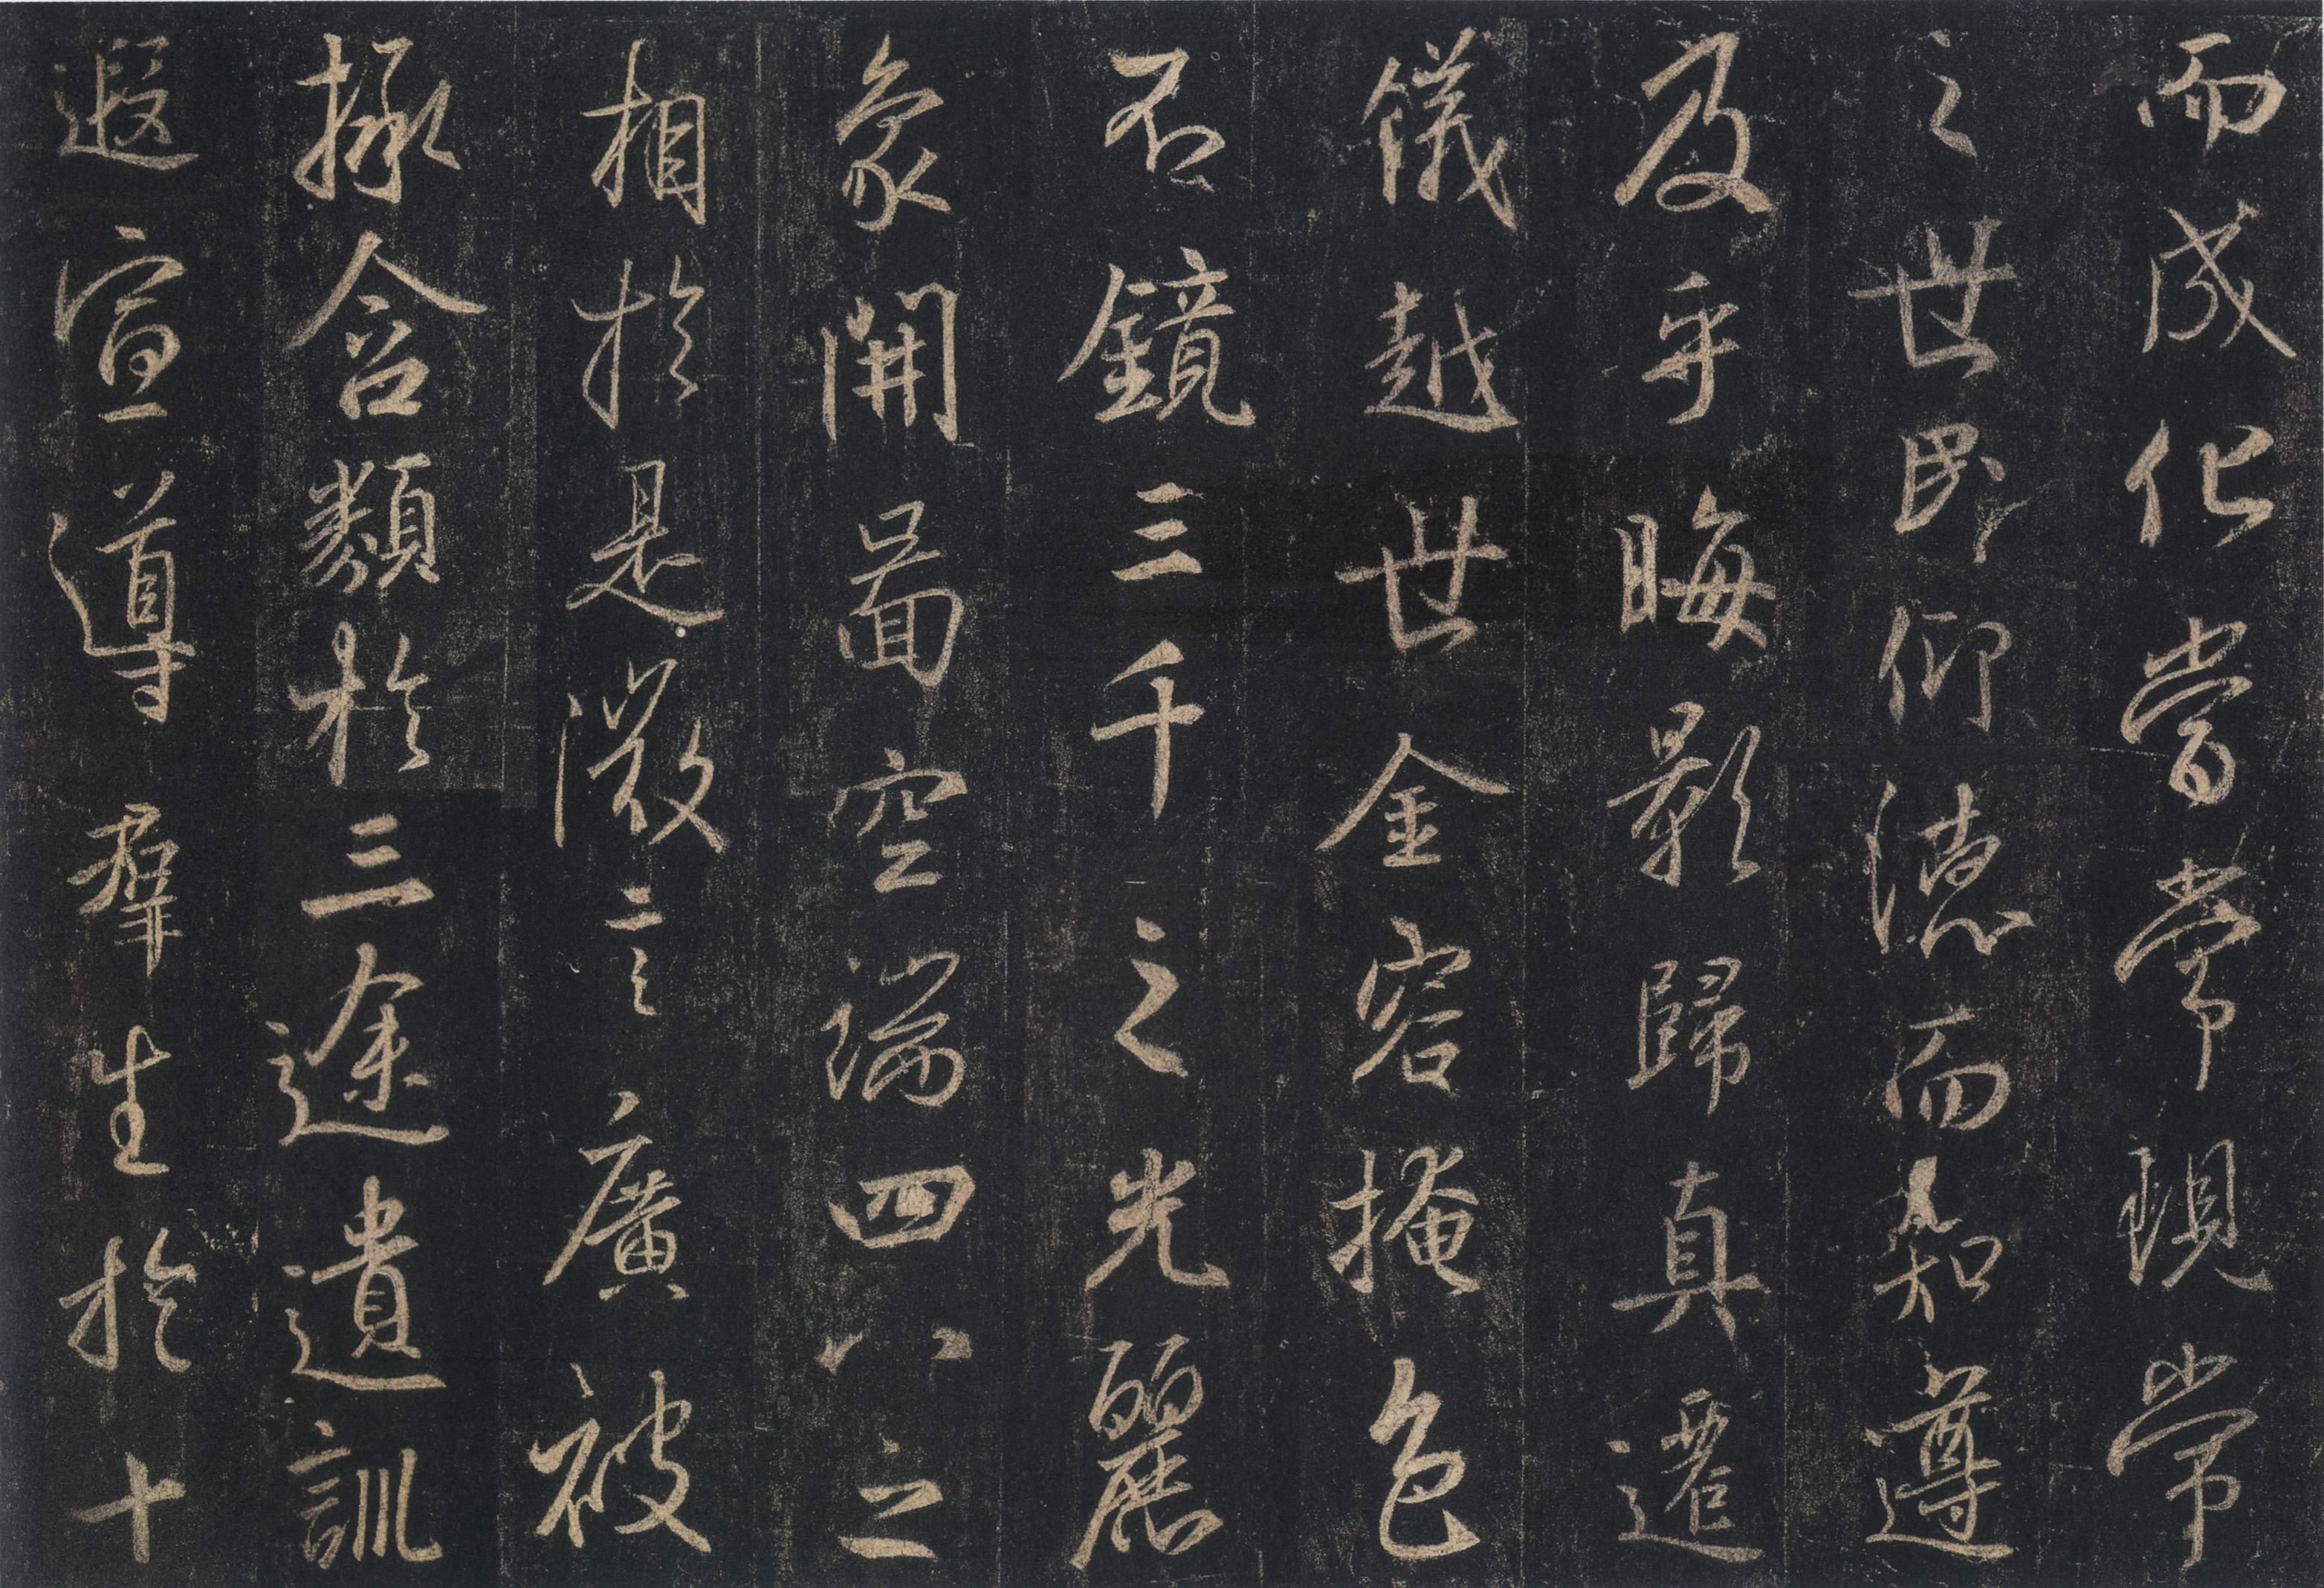 而成化當常現常
之世民仰德而知遵
及乎晦影歸真遷
儀越世金容掩色
不鏡三千之光麗
象開圖空端四八之
相於是微言廣被
拯含類於三途遺訓
遐宣導羣生於十